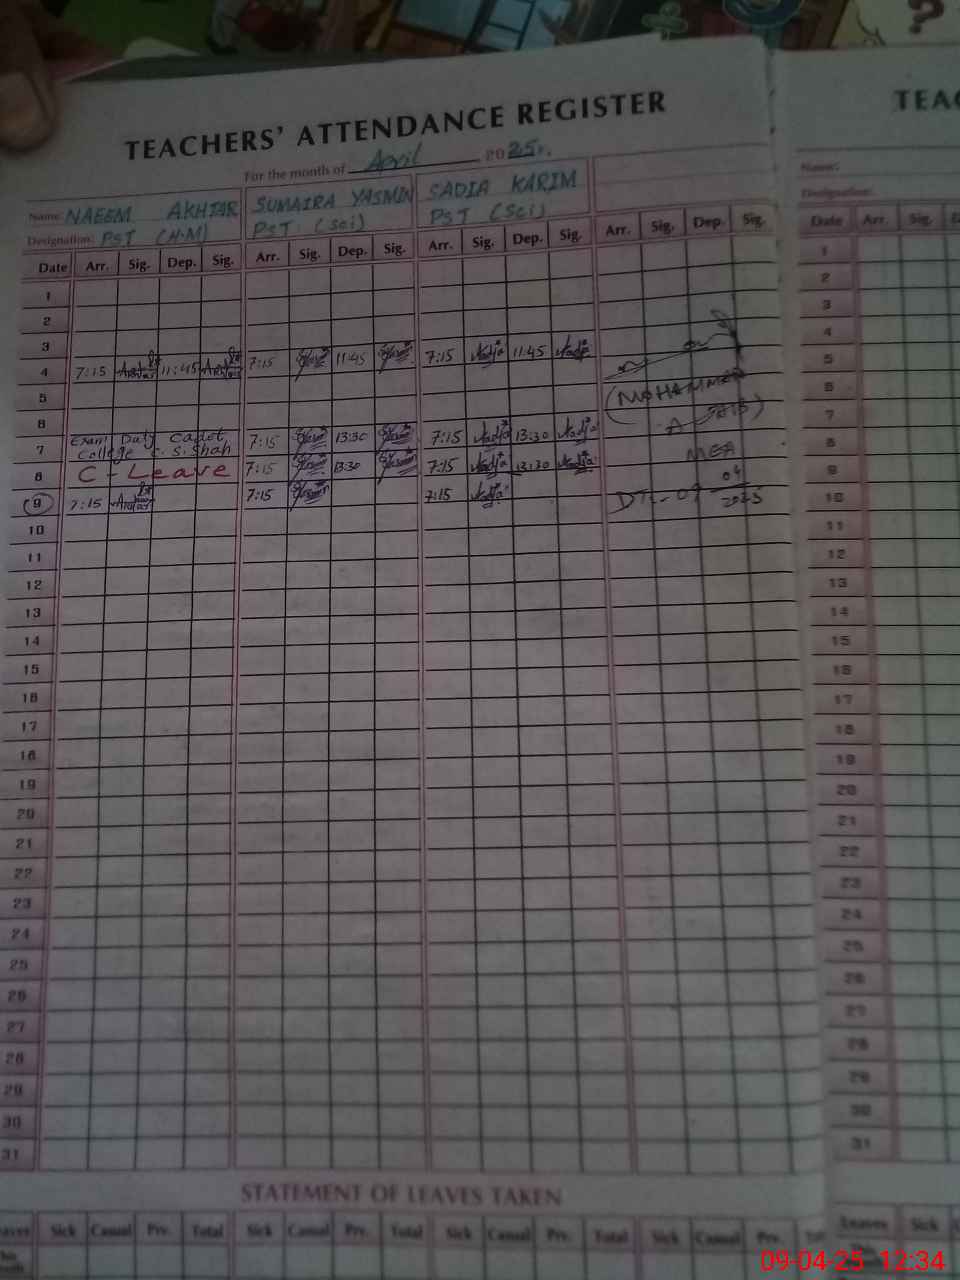 TEACHERS' ATTENDANCE REGISTER
For the month of April 2025.
Name: NAEEM AKHTAR SUMAIRA YASMIN SADIA KARIM
Designation: PST (H.M) PST (Sci) PST (Sci)
Date Arr. Sig. Dep. Sig. Arr. Sig. Dep. Sig. Arr. Sig. Dep. Sig. Arr. Sig. Dep. Sig.
1
2
3
4 7:15 11:45 7:15 11:45 7:15 11:45
5
6
(MOHAMMAD
7 Exam Duty Cadet 7:15 13:30 7:15 13:30
College C.S.Shah
MEA
8 C-Leave 7:15 13:30 7:15 13:30
9 7:15 7:15 7:15 DT:-09 04 2025
10
11
12
13
14
15
16
17
18
19
20
21
22
23
24
25
26
27
28
29
30
31
STATEMENT OF LEAVES TAKEN
Sick Casual Prv. Total Sick Casual Prv. Total Sick Casual Prv. Total Sick Casual Prv.
TEAC
Name:
Designation:
Date Arr. Sig.
1
2
3
4
5
6
7
8
9
10
11
12
13
14
15
16
17
18
19
20
21
22
23
24
25
26
27
28
29
30
31
Leaves Sick
09-04-25 12:34